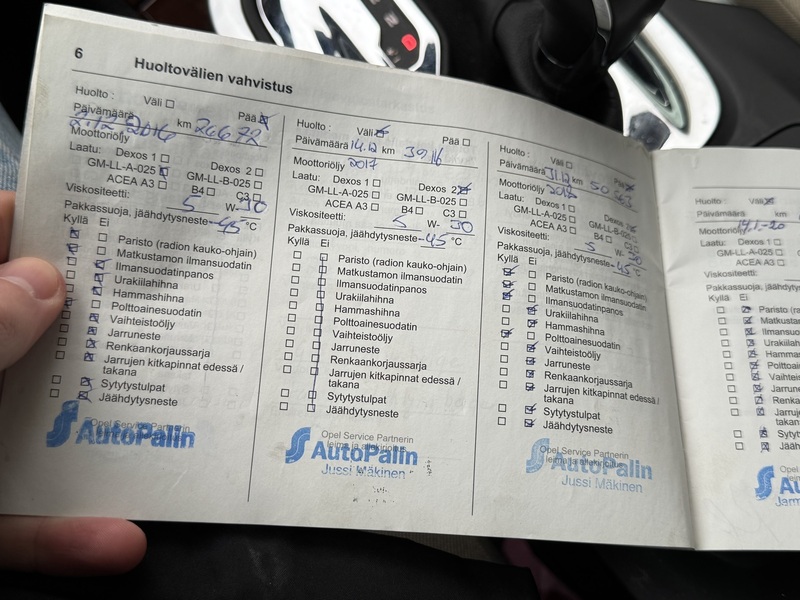 6
Huoltovälien vahvistus
Huolto : Väli Pää
Päivämäärä 2.12.2016 km 26672
Moottoriöljy
Laatu: Dexos 1 Dexos 2
GM-LL-A-025 GM-LL-B-025
ACEA A3 B4 C3
Viskositeetti: 5 W- 30
Pakkassuoja, jäähdytysneste -45 °C
Kyllä Ei
Paristo (radion kauko-ohjain)
Matkustamon ilmansuodatin
Ilmansuodatinpanos
Urakiilahihna
Hammashihna
Polttoainesuodatin
Vaihteistoöljy
Jarruneste
Renkaankorjaussarja
Jarrujen kitkapinnat edessä /
takana
Sytytystulpat
Jäähdytysneste
Opel Service Partnerin
AutoPalin
Huolto : Väli Pää
Päivämäärä 14.12 km 39116
Moottoriöljy 2017
Laatu: Dexos 1 Dexos 2
GM-LL-A-025 GM-LL-B-025
ACEA A3 B4 C3
Viskositeetti: 5 W- 30
Pakkassuoja, jäähdytysneste -45 °C
Kyllä Ei
Paristo (radion kauko-ohjain)
Matkustamon ilmansuodatin
Ilmansuodatinpanos
Urakiilahihna
Hammashihna
Polttoainesuodatin
Vaihteistoöljy
Jarruneste
Renkaankorjaussarja
Jarrujen kitkapinnat edessä /
takana
Sytytystulpat
Jäähdytysneste
Opel Service Partnerin
leima ja allekirjoitus
AutoPalin
Jussi Mäkinen
Huolto : Väli Pää
Päivämäärä 31.12 km 50
Moottoriöljy 2018
Laatu: Dexos 1 Dexos
GM-LL-A-025 GM-LL-B-025
ACEA A3 B4 C3
Viskositeetti: 5 W- 30
Pakkassuoja, jäähdytysneste -45 °C
Kyllä Ei
Paristo (radion kauko-ohjain)
Matkustamon ilmansuodatin
Ilmansuodatinpanos
Urakiilahihna
Hammashihna
Polttoainesuodatin
Vaihteistoöljy
Jarruneste
Renkaankorjaussarja
Jarrujen kitkapinnat edessä /
takana
Sytytystulpat
Jäähdytysneste
Opel Service Partnerin
leima ja allekirjoitus
AutoPalin
Jussi Mäkinen
Huolto : Väli
Päivämäärä
Moottoriöljy 14.1.-20
Laatu: Dexos 1
GM-LL-A-025
ACEA A3
Viskositeetti:
Pakkassuoja, jäähdytys
Kyllä Ei
Paristo (ra
Matkustam
Ilmansuod
Urakiilahih
Hammas
Polttoaine
Vaihteis
Jarrune
Renka
Jarruj
takan
Sytyt
Jääh
Opel